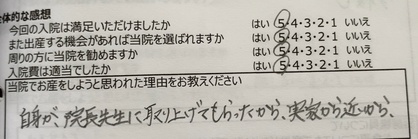 全体的な感想
今回の入院は満足いただけましたか はい 5・4・3・2・1 いいえ
また出産する機会があれば当院を選ばれますか はい 5・4・3・2・1 いいえ
周りの方に当院を勧めますか はい 5・4・3・2・1 いいえ
入院費は適当でしたか はい 5・4・3・2・1 いいえ
当院でお産をしようと思われた理由をお教えください
自身が、院長先生に取り上げてもらったから、実家から近いから、